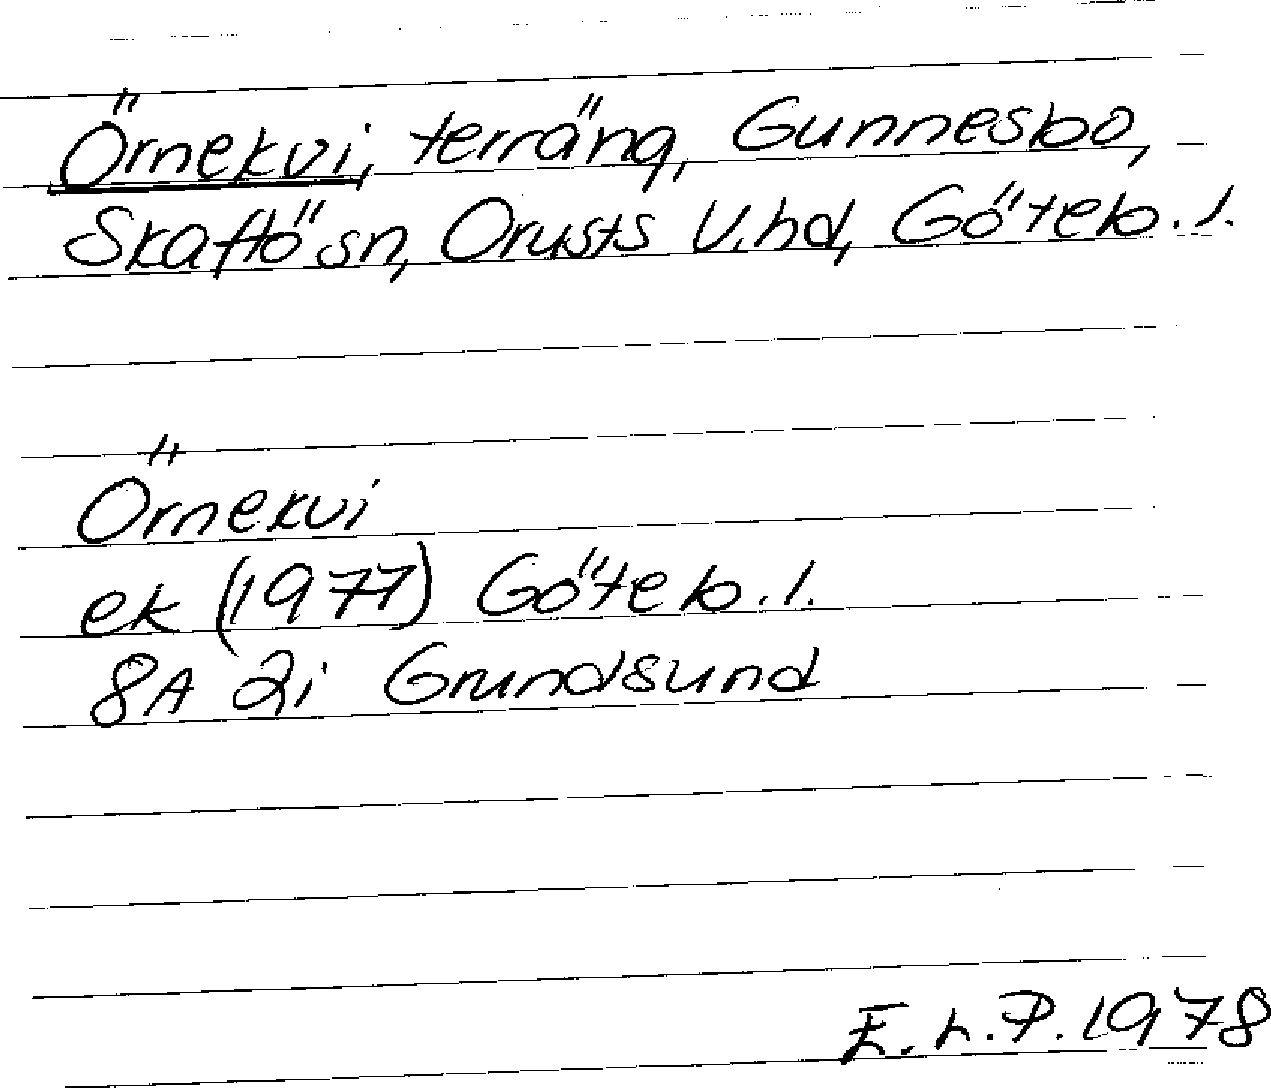 Örnekvi, terräng, Gunnesbo,
Skaftö sn, Orusts V.hd, Göteb.l.
Örnekvi
ek (1977) Göteb.l.
8A 2i Grundsund
E.h.P. 1978